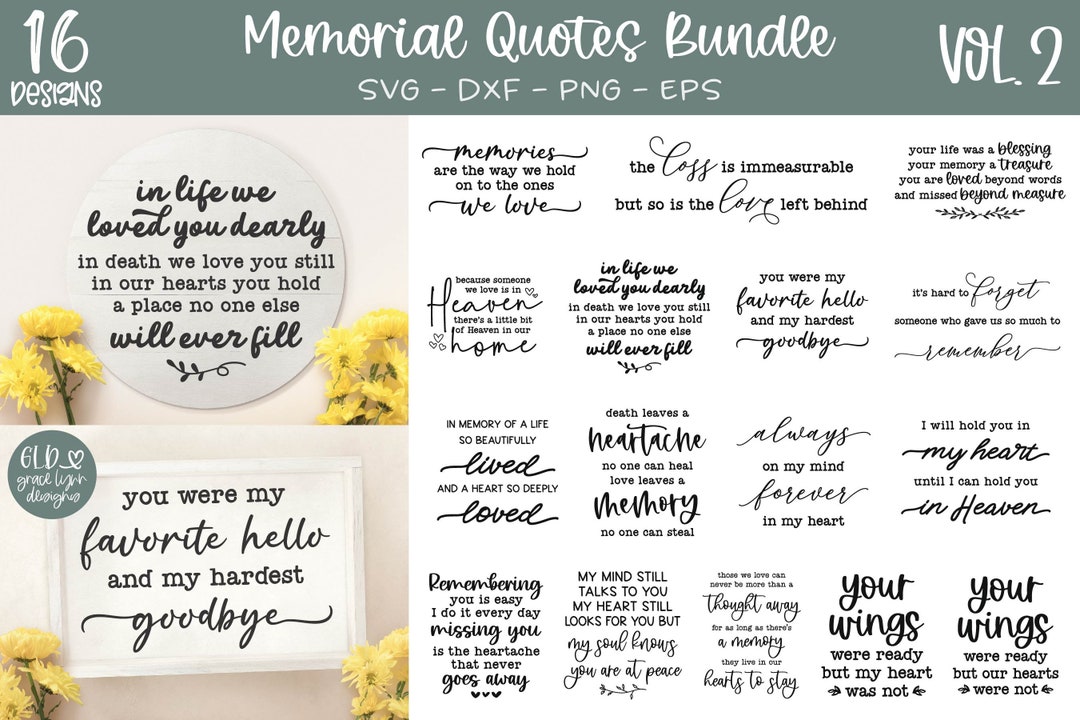 16
DESIGNS
Memorial Quotes Bundle
SVG - DXF - PNG - EPS
VOL. 2
in life we
loved you dearly
in death we love you still
in our hearts you hold
a place no one else
will ever fill
GLD
grace lynn
designs
you were my
favorite hello
and my hardest
goodbye
memories
are the way we hold
on to the ones
we love
the loss is immeasurable
but so is the love left behind
your life was a blessing
your memory a treasure
you are loved beyond words
and missed beyond measure
because someone
we love is in
Heaven
there's a little bit
of Heaven in our
home
in life we
loved you dearly
in death we love you still
in our hearts you hold
a place no one else
will ever fill
you were my
favorite hello
and my hardest
goodbye
it's hard to forget
someone who gave us so much to
remember
IN MEMORY OF A LIFE
SO BEAUTIFULLY
lived
AND A HEART SO DEEPLY
loved
death leaves a
heartache
no one can heal
love leaves a
memory
no one can steal
always
on my mind
forever
in my heart
I will hold you in
my heart
until I can hold you
in Heaven
Remembering
you is easy
I do it every day
missing you
is the heartache
that never
goes away
MY MIND STILL
TALKS TO YOU
MY HEART STILL
LOOKS FOR YOU BUT
my soul knows
you are at peace
those we love can
never be more than a
thought away
for as long as there's
a memory
they live in our
hearts to stay
your
wings
were ready
but my heart
was not
your
wings
were ready
but our hearts
were not